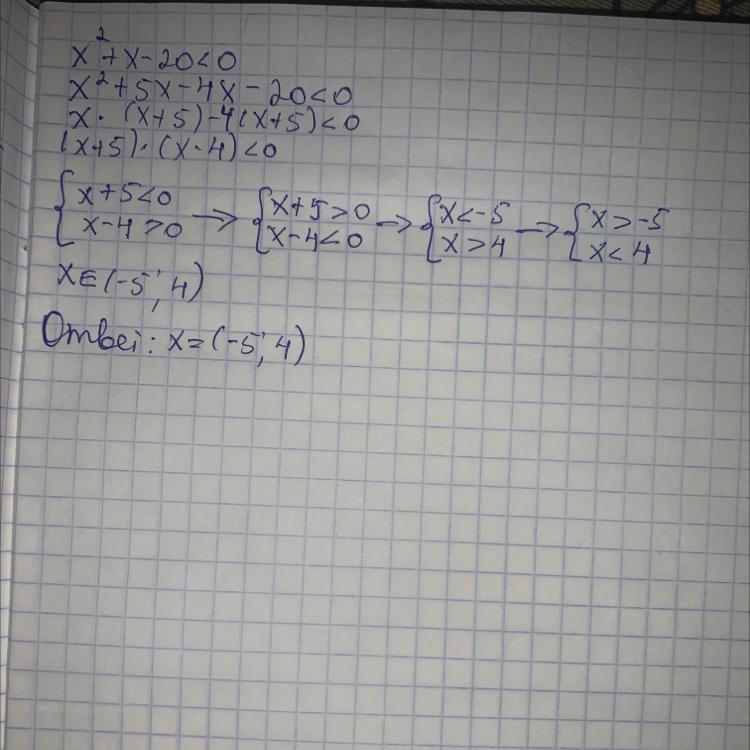 x²+x-20<0
x²+5x-4x-20<0
x·(x+5)-4(x+5)<0
(x+5)·(x-4)<0
{x+5<0 → {x+5>0 → {x<-5 → {x>-5
x-4>0 x-4<0 x>4 x<4
x∈(-5; 4)
Ответ: x=(-5; 4)